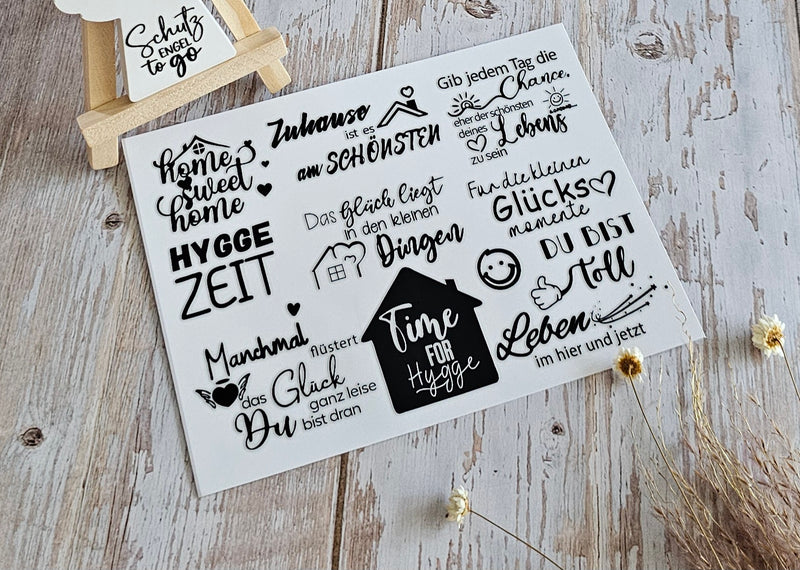 Schutz
ENGEL
to go
home
sweet
home
Zuhause
ist es
am SCHÖNSTEN
Gib jedem Tag die
Chance,
eher der schönsten
deines
Lebens
zu sein
HYGGE
ZEIT
Das Glück liegt
in den kleinen
Dingen
Für die kleinen
Glücks
momente
DU BIST
toll
Manchmal
flüstert
das Glück
ganz leise
Du bist dran
Time
FOR
Hygge
Leben
im hier und jetzt